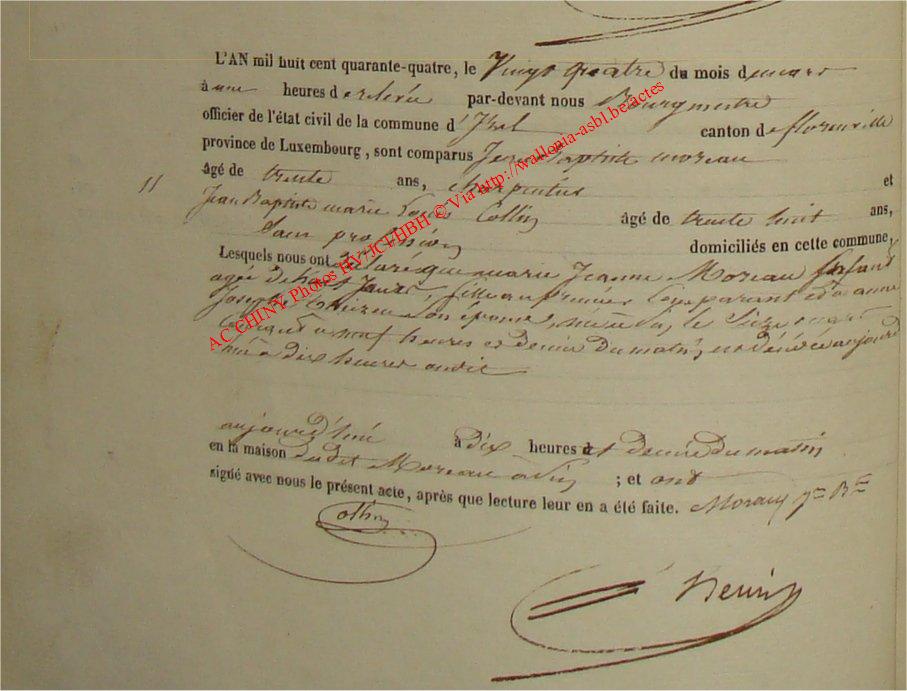 L'AN mil huit cent quarante-quatre, le Vingt quatre du mois de mars
à une heures de relevée par-devant nous Bourgmestre
officier de l'état civil de la commune d'Izel canton de florenville
province de Luxembourg, sont comparus Jean Baptiste moreau
11 âgé de trente ans, charpentier et
Jean Baptiste marie Collin âgé de trente huit ans,
Sans profession domiciliés en cette commune,
Lesquels nous ont déclaré que marie Jeanne Moreau Enfant
agée de huit Jours, fille au premier Comparant et à anne
Joseph son épouse, née le Seize mars
à neuf heures et demie du matin, est décédée aujourd
à dix heures
aujourd'hui à dix heures et demie du matin
en la maison dudit Moreau ; et ont
signé avec nous le présent acte, après que lecture leur en a été faite. Moreau Jn Bte
Collin
Henin
AC CHINY Photos HV/JCVHBH © Via http://wallonia-asbl.be/actes